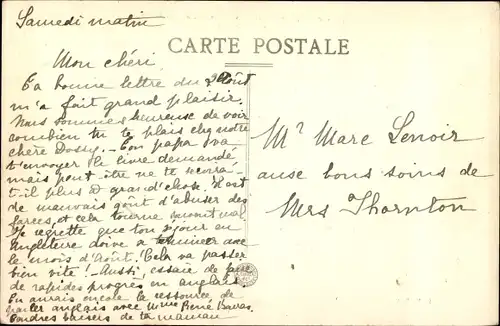 Samedi matin
CARTE POSTALE
Mon chéri
Ta bonne lettre du 2 Août
m'a fait grand plaisir.
Nous sommes heureuse de voir
combien tu te plais chez notre
chère Dossy. - Ton papa va
t'envoyer le livre demandé
mais peut être ne te servira-
t-il plus à grand'chose. Il est
de mauvais goût d'abuser des
farces, et cela tourne souvent mal.
Je regrette que ton séjour en
Angleterre doive se terminer avec
le mois d'Août. Cela va passer
bien vite! - Aussi, essaie de faire
de rapides progrès en anglais.
Tu auras encore la ressource de
parler anglais avec Mme Pierre
Tendres baisers de ta maman
Mr Marc Lenoir
aux bons soins de
Mrs Thornton